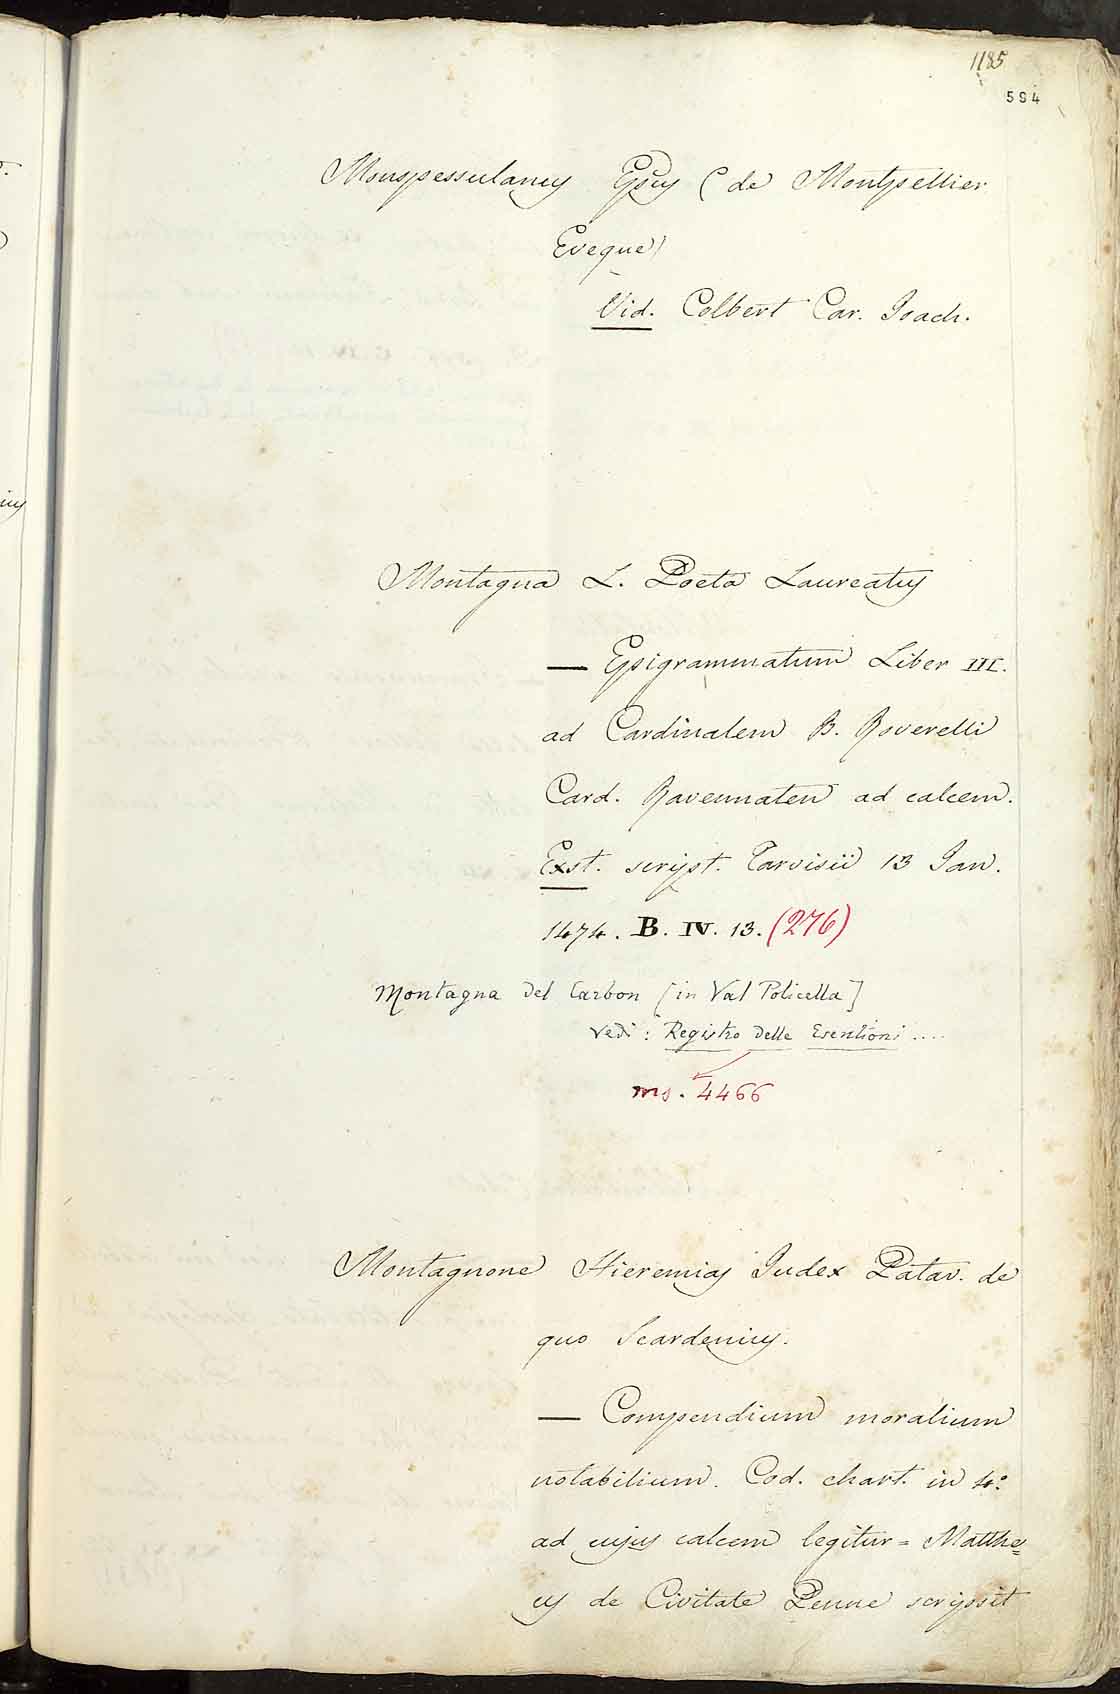 1185
594
Monspessulanus Epus (de Montpellier
Eveque)
Vid. Colbert Car. Joach.
Montagna L. Poeta Laureatus
— Epigrammatum Liber III.
ad Cardinalem B. Roverelli
Card. Ravennaten ad calcem.
Exst. script. Tarvisii 13 Jan.
1474. B. IV. 13. (276)
Montagna del Carbon [in Val Policella]
vedi: Registro delle Esentioni ....
ms. 4466
Montagnone Hieremias Judex Patav. de
quo Scardenius.
— Compendium moralium
notabilium. Cod. chart. in 4º
ad cujus calcem legitur = Matthe=
us de Civitate Penne scripsit